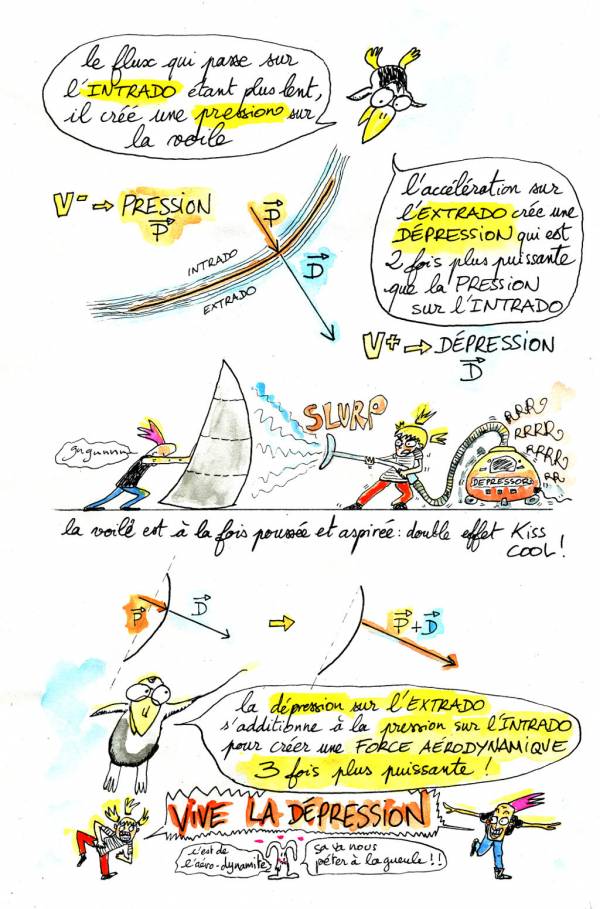 le flux qui passe sur
l'INTRADO étant plus lent,
il créé une pression sur
la voile
V- → PRESSION
P
P
D
INTRADO
EXTRADO
l'accélération sur
l'EXTRADO crée une
DÉPRESSION qui est
2 fois plus puissante
que la PRESSION
sur l'INTRADO
V+ → DÉPRESSION
D
SLURP
RRR
RRRR
RRRR
RR
DEPRESSOR
la voile est à la fois poussée et aspirée: double effet KISS
COOL!
P
D
P+D
la dépression sur l'EXTRADO
s'additionne à la pression sur l'INTRADO
pour créer une FORCE AÉRODYNAMIQUE
3 fois plus puissante!
VIVE LA DÉPRESSION
c'est de
l'aéro-dynamite
ça va nous
péter à la gueule!!